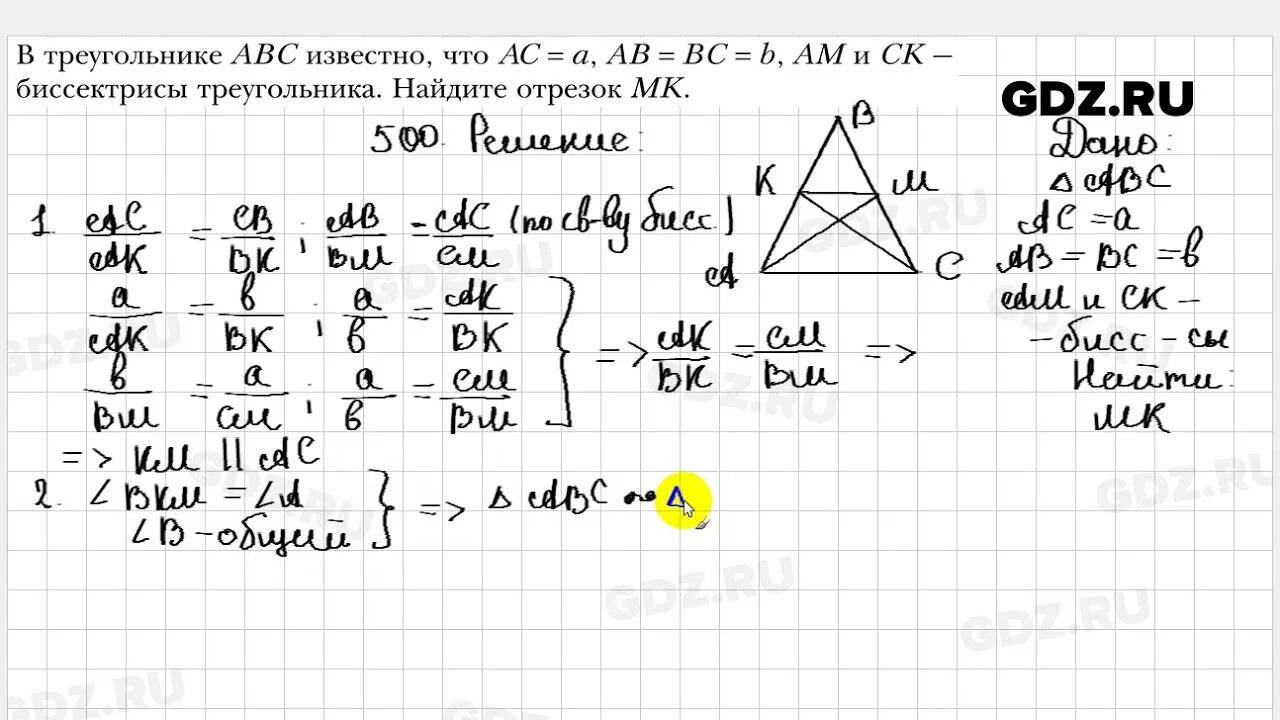 В треугольнике ABC известно, что AC = a, AB = BC = b, AM и CK –
биссектрисы треугольника. Найдите отрезок MK.
GDZ.RU
500. Решение:
Дано:
△ ABC
AC = a
AB = BC = b
AM и CK –
– бисс – сы
Найти:
MK
B
K
M
A
C
1. AC/AK = CB/BK ; AB/BM = AC/CM (по св-ву бисс.)
a/AK = b/BK ; a/b = AK/BK
b/BM = a/CM ; a/b = CM/BM
=> AK/BK = CM/BM =>
=> KM || AC
2. ∠ BKM = ∠A
∠B – общий
=> △ ABC ∾ △
GDZ.RU
GDZ.RU
GDZ.RU
GDZ.RU
GDZ.RU
GDZ.RU
GDZ.RU
GDZ.RU